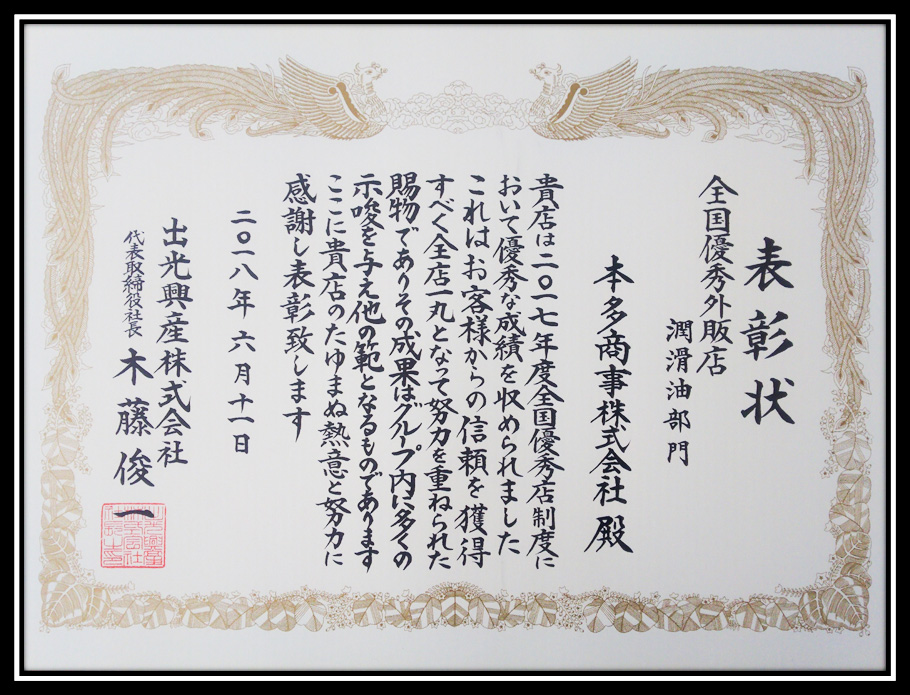 表彰状
全国優秀外販店
潤滑油部門
本多商事株式会社 殿
貴店は二〇一七年度全国優秀店制度に
おいて優秀な成績を収められました
これはお客様からの信頼を獲得
すべく全店一丸となって努力を重ねられた
賜物でありその成果はグループ内に多くの
示唆を与え他の範となるものであります
ここに貴店のたゆまぬ熱意と努力に
感謝し表彰致します
二〇一八年 六月十一日
出光興産株式会社
代表取締役社長 木藤俊一